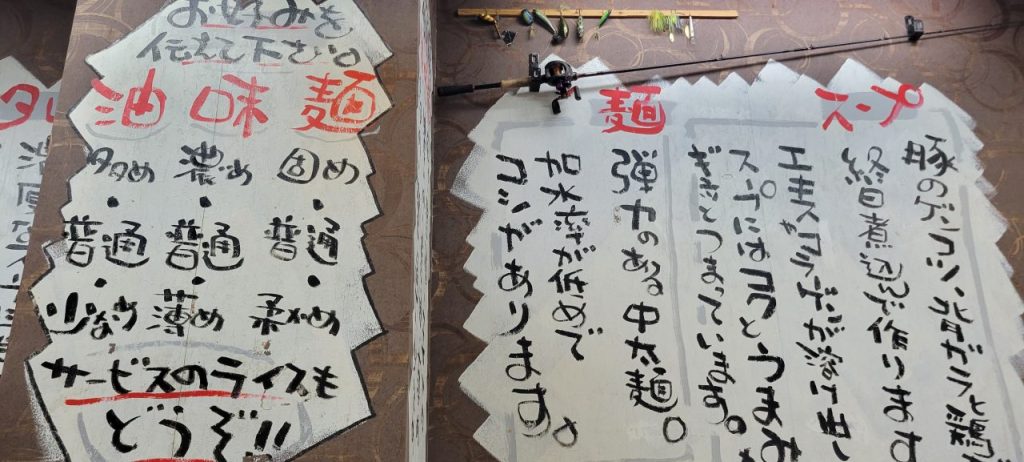 お好みを
伝えて下さい。
油 味 麺
多め 濃め 固め
・ ・ ・
普通 普通 普通
・ ・ ・
少なめ 薄め 柔かめ
サービスのライスも
どうぞ!!
スープ
豚のゲンコツ、背ガラと鶏
終日煮込んで作ります
エキスやコラーゲンが溶け出し
スープにはコクとうまみ
つまっています。
麺
弾力のある中太麺。
加水率が低めで
コシがあります。